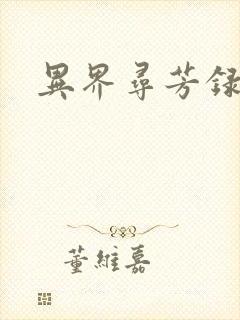 異界尋芳録
董維嘉